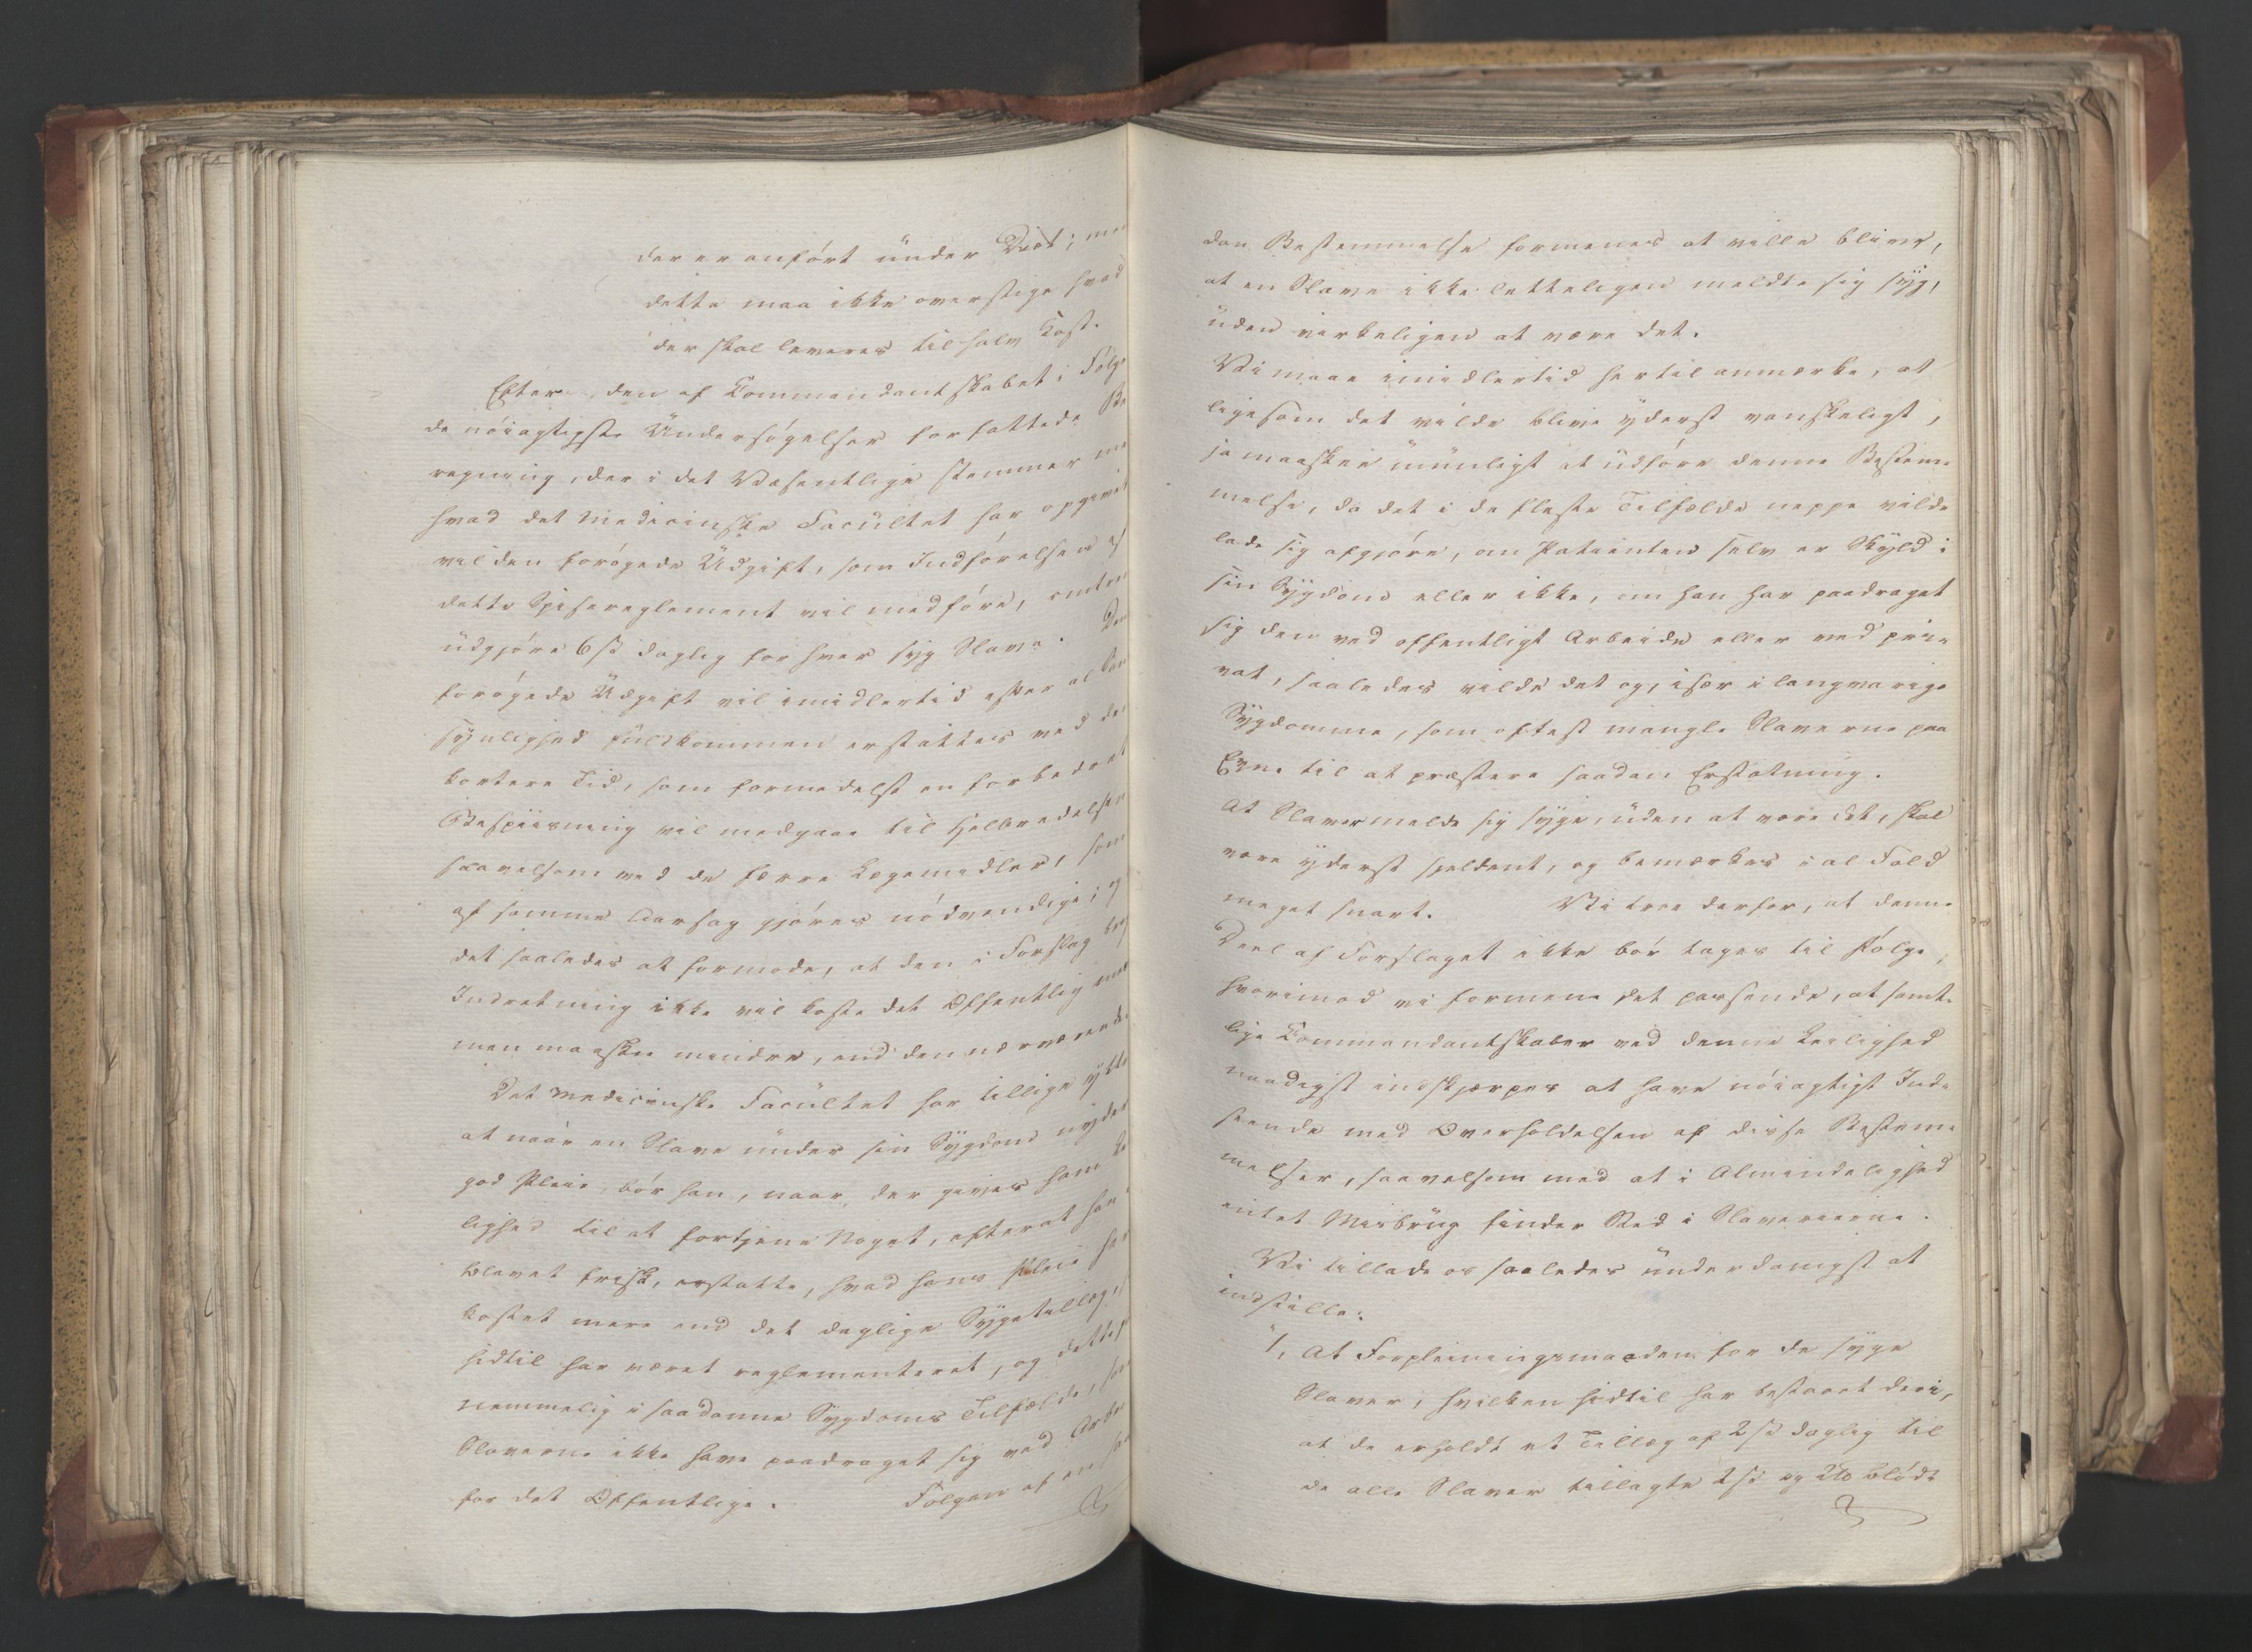 der er anført under Diæt; men
dette maa ikke overstige hvad
der skal leveres til halv Kost.
Efter den af Commandantskabet i Følge
de nøiagtigste Undersøgelser forfattede Be
regning, der i det Væsentlige stemmer med
hvad det medicinske Facultet har opgivet
vil den forøgede Udgift, som Indførelsen af
dette Spisereglement vil medføre, omtrent
udgjøre 6 ß daglig for hver syg Slave. Den
forøgede Udgift vil imidlertid efter al San
synlighed fuldkommen erstattes ved den
kortere Tid, som formedelst en forbedret
Bespiisning vil medgaae til Helbredelsen
saavelsom ved de færre Lægemidler, som
af samme Aarsag gjøres nødvendige; og
det saaledes at formode, at den i Forslag brag
Indretning ikke vil koste det Offentlig mer
men maaskee mindre, end den nærværende.
Det medicinske Facultet har tillige yttr
at naar en Slave under sin Sygdom nyder
god Pleie, bør han, naar der gives ham Lei
lighed til at fortjene Noget, efterat han
blevet frisk, erstatte, hvad hans Pleie har
kostet mere end det daglige Sygetillæg,
hidtil har været reglementeret, og dette
nemmelig i saadanne Sygdoms Tilfælde, som
Slaverne ikke have paadraget sig ved Arbei
for det Offentlige. Følgen af en saa
dan Bestemmelse formenes at ville blive,
at en Slave ikke letteligen meldte sig syg,
uden virkeligen at være det.
Vi maae imidlertid hertil anmærke, at
ligesom det vilde blive yderst vanskeligt,
ja maaskee umuligt at udføre denne Bestem
melse, da det i de fleste Tilfælde neppe vilde
lade sig afgjøre, om Patienten selv er Skyld i
sin Sygdom eller ikke, om han har paadraget
sig den ved offentligt Arbeide eller ved pri-
vat, saaledes vilde det og, især i langvarige
Sygdomme, som oftest mangle Slaverne paa
Evne til at præstere saadan Erstatning.
At Slaver melde sig syge, uden at være det, skal
være yderst sjeldent, og bemærkes i al Fald
meget snart. Vi troe derfor, at denne
Deel af Forslaget ikke bør tages til Følge,
hvorimod vi formene det passende, at samt-
lige Commandantskaber ved denne Leilighed
naadigst indskjærpes at have nøiagtigt Ind-
seende med Overholdelsen af disse Bestem-
melser, saavelsom med at i Almindelighed
intet Misbrug finder Sted i Slaverierne.
Vi tillade os saaledes underdanigst at
indstille:
1, At Forpleiningsmaaden for de syge
Slaver, hvilken hidtil har bestaaet deri,
at de erholdt et Tillæg af 2 ß daglig til
de alle Slaver tillagte 2 ß og 2 ℔ Brød